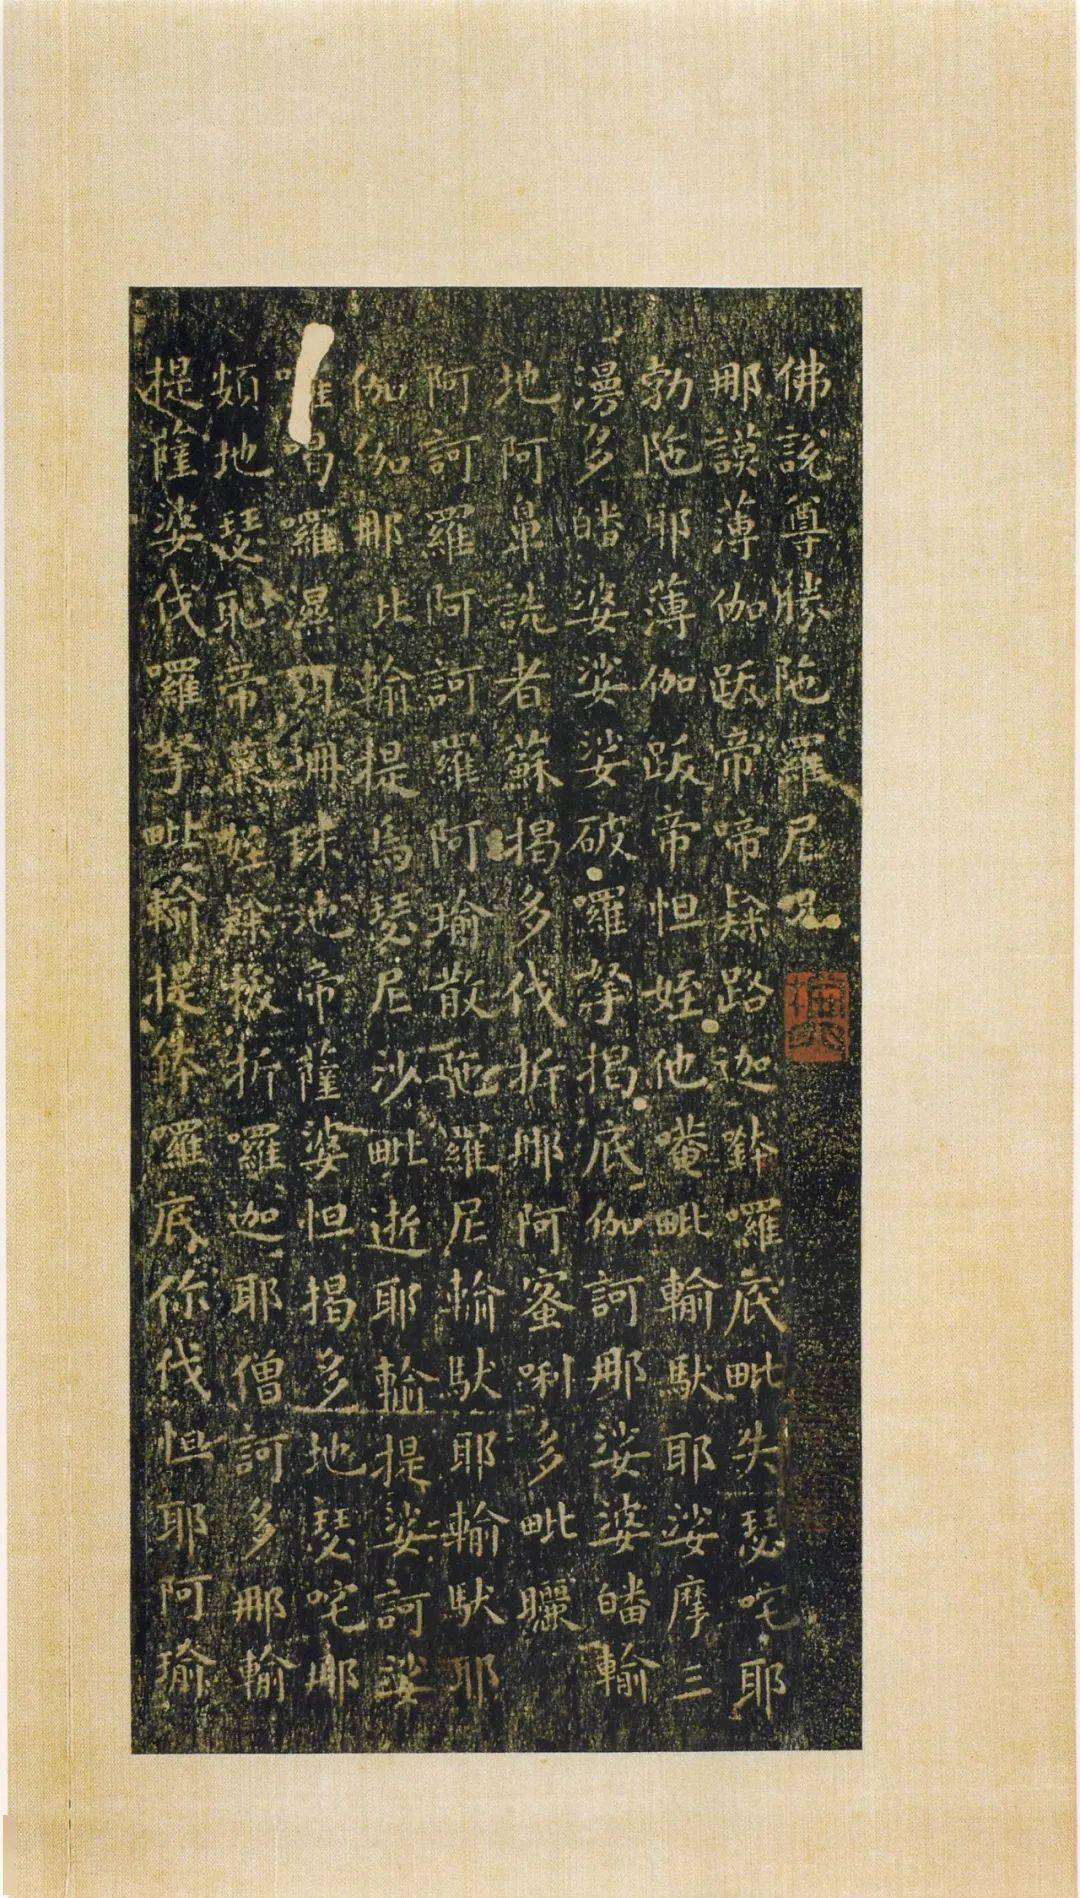 佛說尊勝陁羅尼咒
那謨薄伽跋帝啼隸路迦鉢囉底毗失瑟咤耶
勃陁耶薄伽跋帝怛姪他唵毗輸馱耶娑摩三
漫多皤婆娑娑破囉拏揭底伽訶那娑婆皤輸
地阿鼻詵者蘇揭多伐折那阿蜜唎多毗曬
阿訶羅阿訶羅阿瑜散馳羅尼輸馱耶輸馱耶
伽伽那比輸提烏瑟尼沙毗逝耶輸提娑訶娑
囉曷囉濕珊珠池帝薩婆怛揭多地瑟咤那
頞地瑟耻帝慕姪隸拔折囉迦耶僧訶多那輸
提薩婆伐囉拏毗輸提鉢囉底你伐怛耶阿瑜